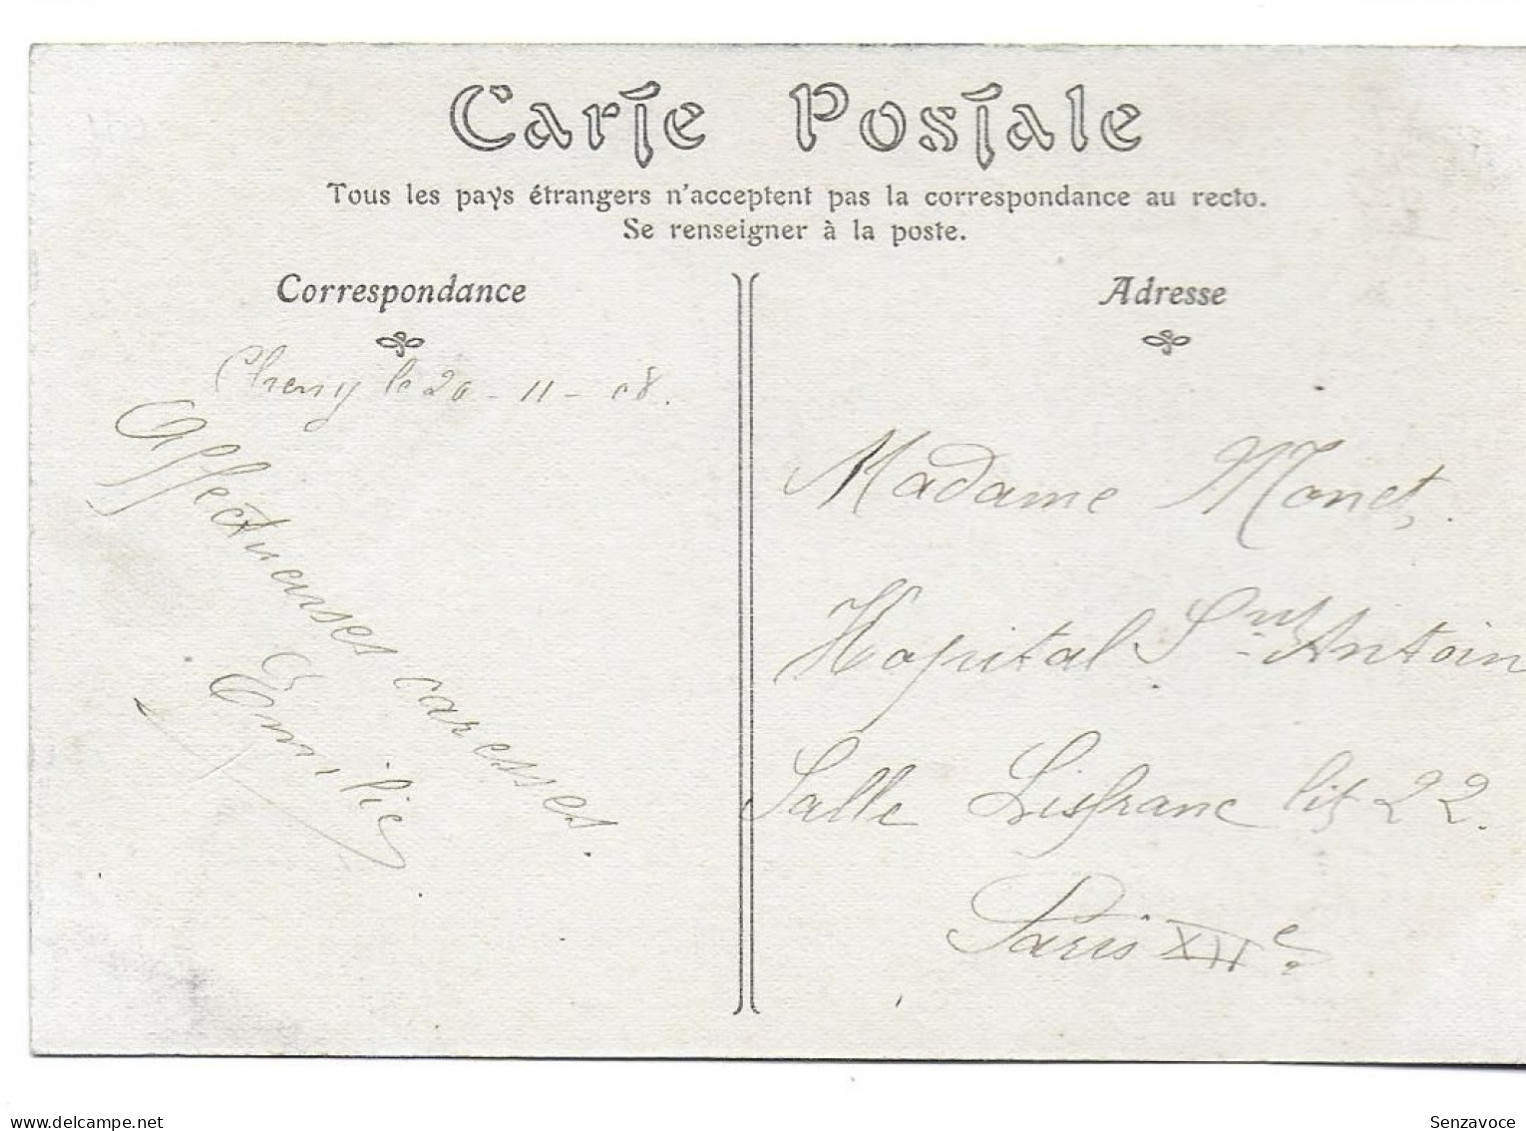 Carte Postale
Tous les pays étrangers n'acceptent pas la correspondance au recto.
Se renseigner à la poste.
Correspondance
Cheny le 20 - 11 - 08.
Affectueuses caresses.
Emilie
Adresse
Madame Monet.
Hopital Snt Antoin
Salle Lisfranc lit 22.
Paris XIIe
delcampe.net
Senzavoce